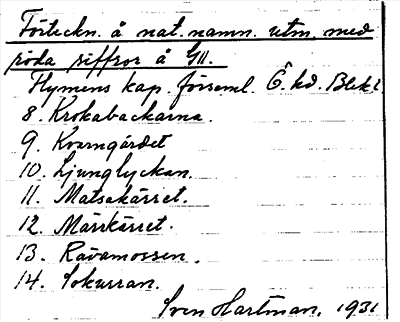 Förteckn. å nat. namn. utm. med
röda siffror å GII.
Flymens kap. församl. Ö. hd. Blek l.
8. Krokabackarna.
9. Kvarngärdet
10. Ljunglyckan.
11. Matsakärret.
12. Märrkärret.
13. Rävamossen.
14. Sokurran.
Sven Hartman. 1931